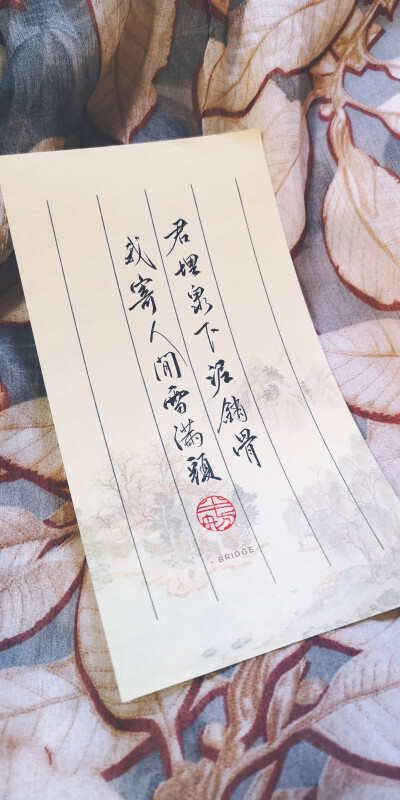 君埋泉下泥銷骨
我寄人間雪滿頭
- BRIDGE